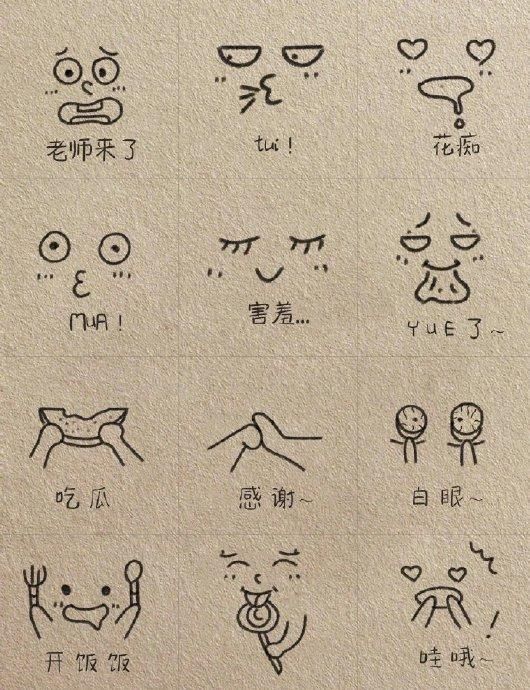 老师来了
tui！
花痴
MUA！
害羞...
YUE了～
吃瓜
感谢～
白眼～
开饭饭
哇哦～